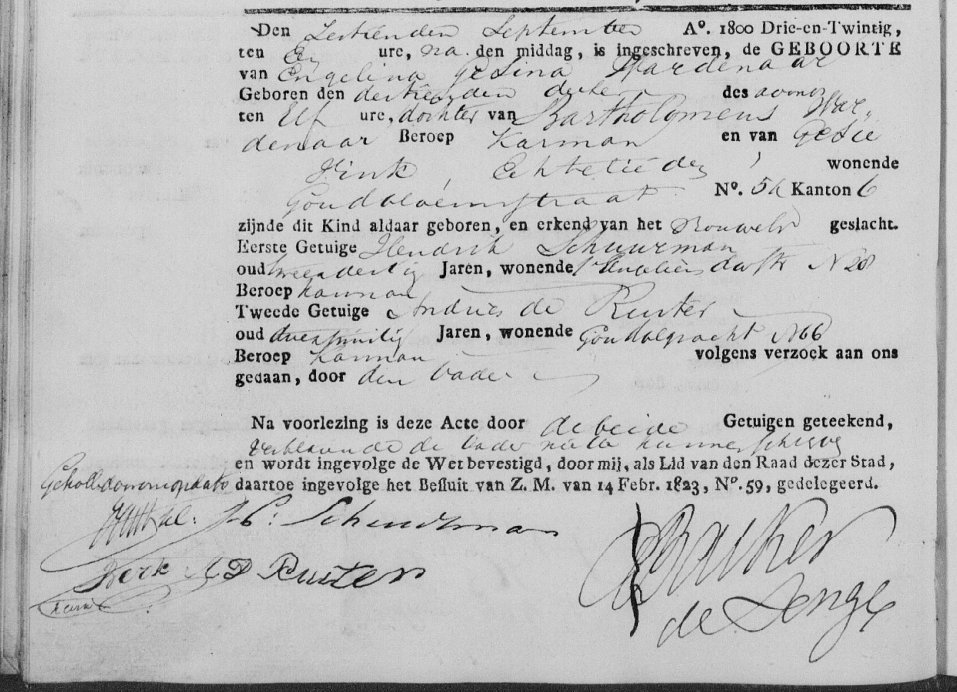 Den Zestienden September Aº. 1800 Drie-en-Twintig,
ten Een ure, na den middag, is ingeschreven, de GEBOORTE
van Engelina Gesina Wardenaar
Geboren den dertienden dezer des avonds
ten Elf ure, dochter van Bartholomeus War-
denaar Beroep Karman en van Gesie
Vink, Echtelieden, wonende
Goudbloemstraat Nº. 52 Kanton 6
zijnde dit Kind aldaar geboren, en erkend van het Vrouwelk geslacht.
Eerste Getuige Hendrik Schuurman
oud tweendertig Jaren, wonende Angeliersdwstr N 28
Beroep karman
Tweede Getuige Andries de Ruiter
oud Jaren, wonende Goudblgracht N 66
Beroep karman volgens verzoek aan ons
gedaan, door den Vader
Na voorlezing is deze Acte door de beide Getuigen geteekend,
verklarende de Vader niet te kunnen schryven
en wordt ingevolge de Wet bevestigd, door mij, als Lid van den Raad dezer Stad,
daartoe ingevolge het Besluit van Z. M. van 14 Febr. 1823, Nº. 59, gedelegeerd.
H: Schuurman
A D Ruiter
Bakker
de Lenge